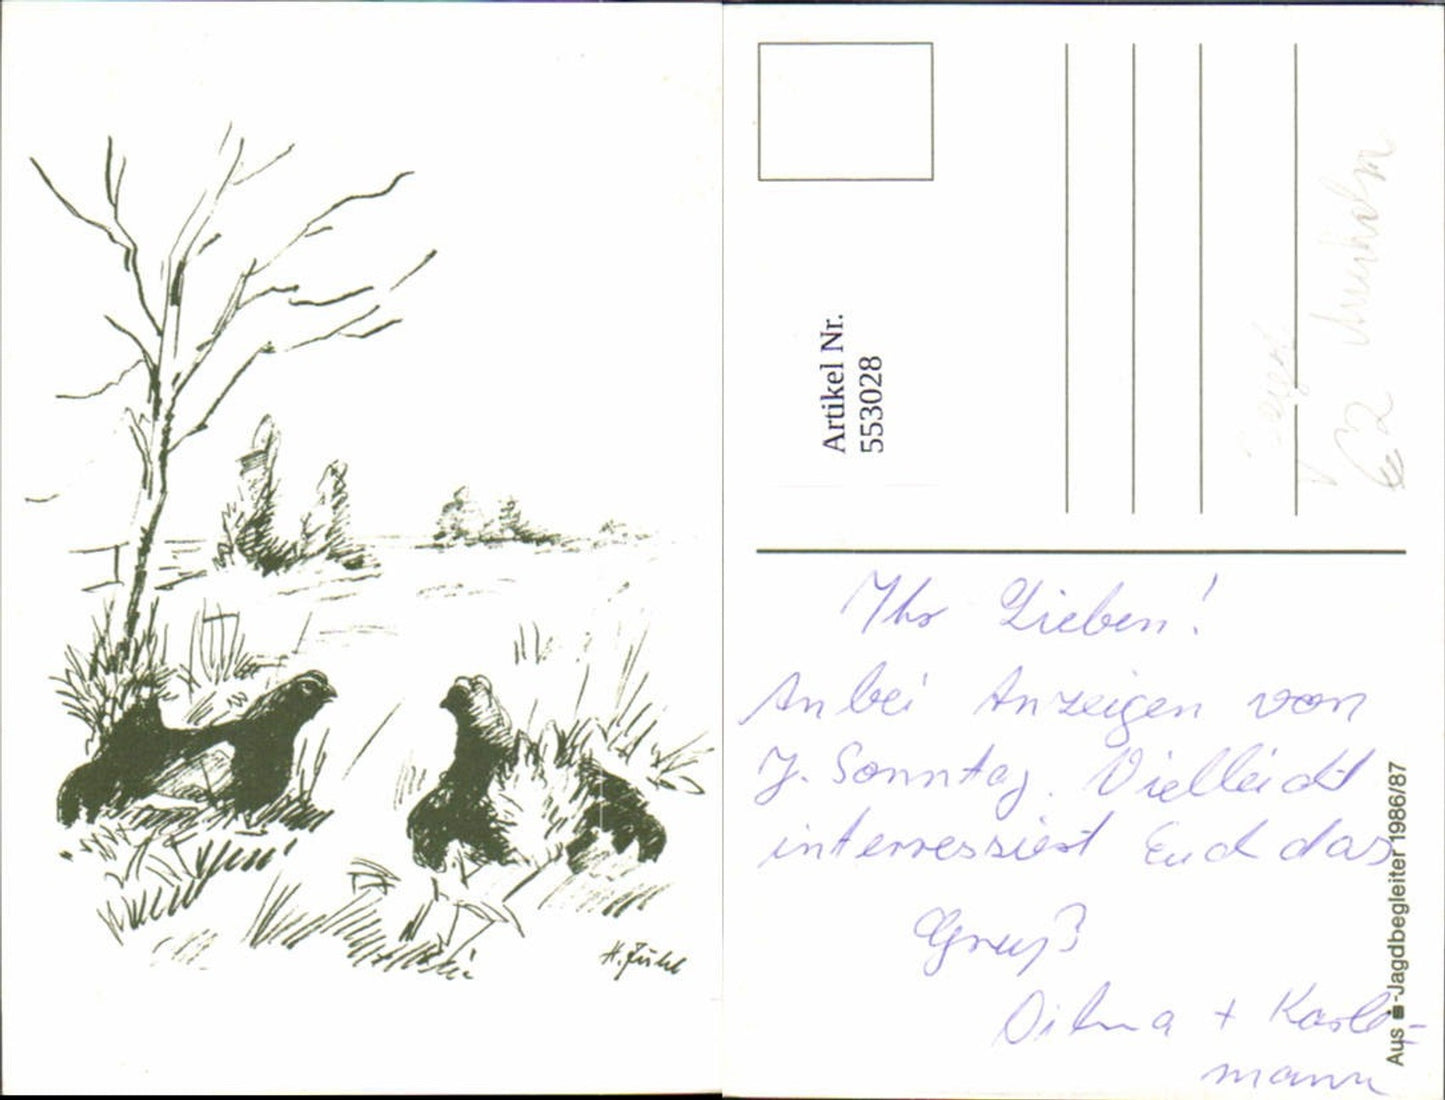 H. Zühl
Artikel Nr.
553028
Ihr Lieben!
Anbei Anzeigen von
J. Sonntag. Vielleicht
interressiert Euch das
Gruß
Dilma + Karle-
mann
Aus -Jagdbegleiter 1986/87